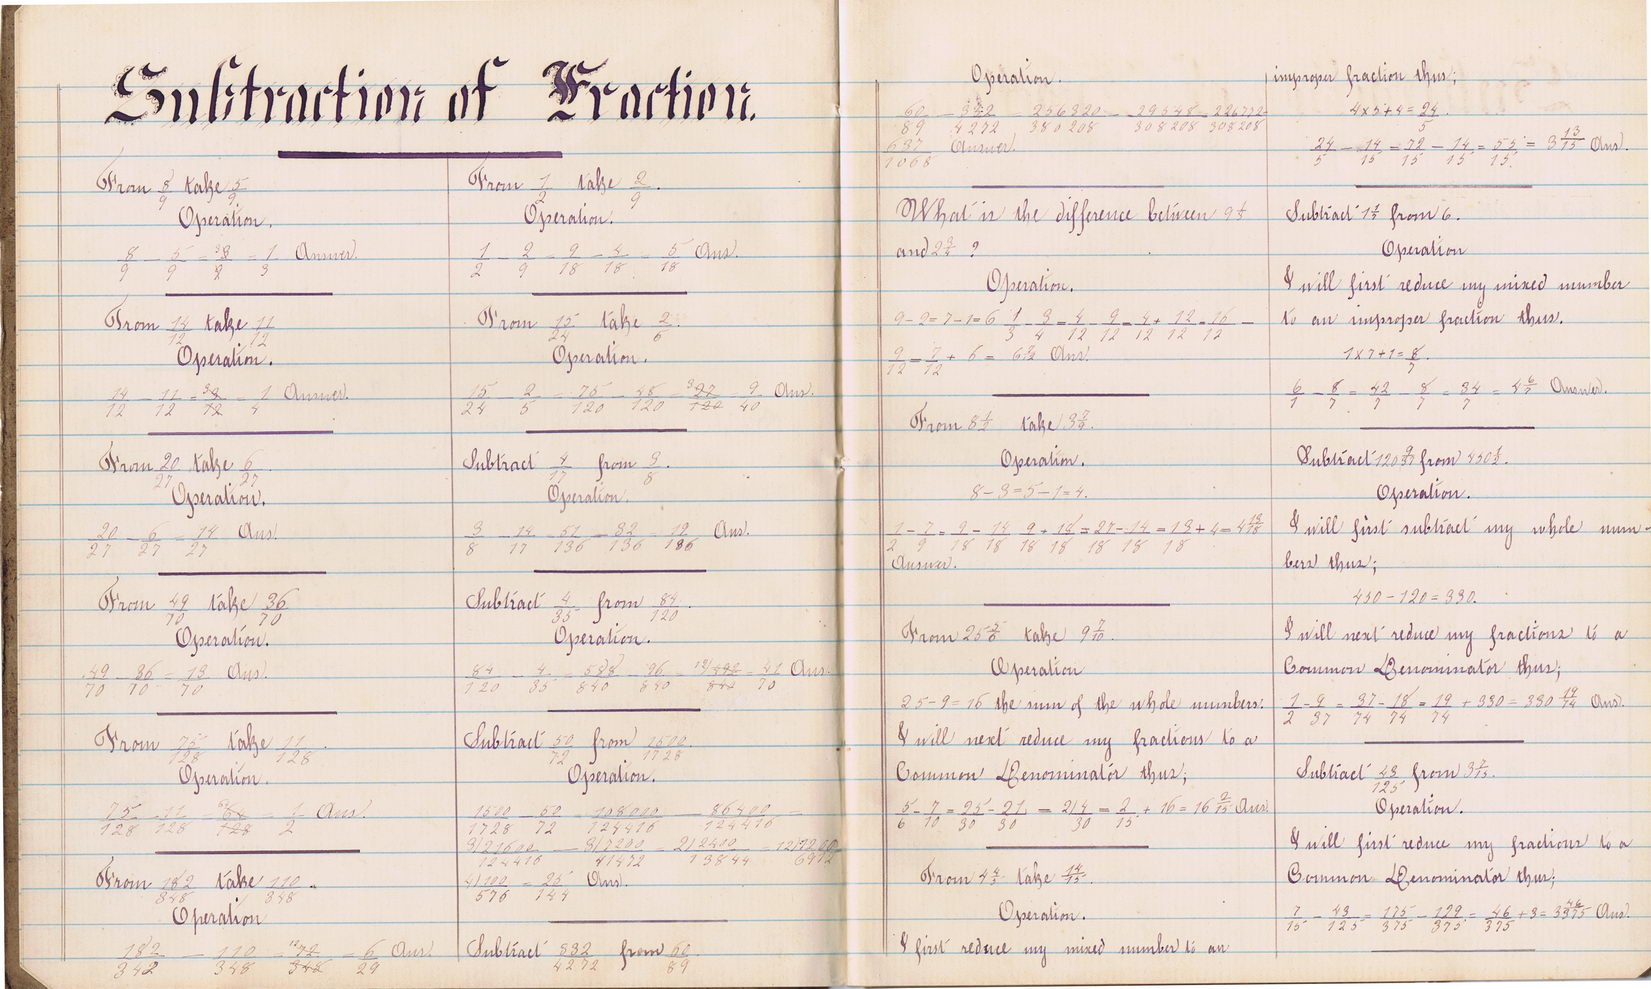 Subtraction of Fraction.
From 8/9 take 5/9
Operation.
8/9 - 5/9 = 3/9 = 1/3 Answer.
From 14/12 take 11/12
Operation.
14/12 - 11/12 = 3/12 = 1/4 Answer.
From 20/27 take 6/27
Operation.
20/27 - 6/27 = 14/27 Ans.
From 49/70 take 36/70
Operation.
49/70 - 36/70 = 13/70 Ans.
From 75/128 take 11/128
Operation.
75/128 - 11/128 = 64/128 = 1/2 Ans.
From 182/348 take 110/348
Operation
182/348 - 110/348 = 72/348 = 6/29 Ans.
From 1/2 take 2/9.
Operation.
1/2 - 2/9 = 9/18 - 4/18 = 5/18 Ans.
From 15/24 take 2/6.
Operation.
15/24 - 2/5 = 75/120 - 48/120 = 27/120 = 9/40 Ans.
Subtract 4/17 from 3/8.
Operation.
3/8 - 14/17 = 51/136 - 32/136 = 19/136 Ans.
Subtract 4/35 from 84/120
Operation.
84/120 - 4/35 = 588/840 - 96/840 = 12)492/840 = 41/70 Ans.
Subtract 50/72 from 1500/1728.
Operation.
1500/1728 - 50/72 = 108000/124416 - 86400/124416 =
3)21600/124416 = 3)7200/41472 = 2)2400/13844 = 12)1200/6912
4)100/576 = 25/144 Ans.
Subtract 332/4272 from 60/89
Operation.
60/89 - 332/4272 = 256320/380208 - 29548/308208 = 226772/308208
637/1068 Answer.
What is the difference between 9 1/3
and 2 3/4 ?
Operation.
9-2=7-1=6 1/3 - 3/4 = 4/12 - 9/12 = 4/12 + 12/12 = 16/12 -
9/12 = 7/12 + 6 = 6 7/12 Ans.
From 8 1/2 take 3 7/9.
Operation.
8-3=5-1=4.
1/2 - 7/9 = 9/18 - 14/18 9/18 + 18/18 = 27/18 - 14/18 = 13/18 + 4 = 4 13/18
Answer.
From 25 5/6 take 9 7/10.
Operation
25-9=16 the sum of the whole numbers.
I will next reduce my fractions to a
Common Denominator thus;
5/6 - 7/10 = 25/30 - 21/30 = 2)4/30 = 2/15 + 16 = 16 2/15 Ans.
From 4 4/5 take 14/15.
Operation.
I first reduce my mixed number to an
improper fraction thus;
4x5+4=24/5.
24/5 - 14/15 = 72/15 - 14/15 = 55/15 = 3 13/15 Ans.
Subtract 1 1/7 from 6.
Operation
I will first reduce my mixed number
to an improper fraction thus.
1x7+1=8/7.
6/1 - 8/7 = 42/7 - 8/7 = 34/7 = 4 6/7 Answer.
Subtract 120 9/37 from 450 1/2.
Operation.
I will first subtract my whole num-
bers thus;
450-120=330.
I will next reduce my fractions to a
Common Denominator thus;
1/2 - 9/37 = 37/74 - 18/74 = 19/74 + 330 = 330 19/74 Ans.
Subtract 43/125 from 3 7/15.
Operation.
I will first reduce my fractions to a
Common Denominator thus;
7/15 - 43/125 = 175/375 - 129/375 = 46/375 + 3 = 3 46/375 Ans.